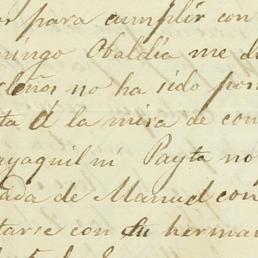 or para cumplir con
mingo Obaldia me d
leños no ha sido por
ta á la mira de con
ayaquil ni Payta no
ada de Manuel con
tarse con su herma